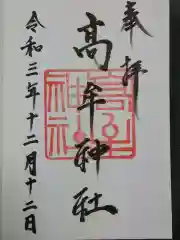 奉拝
高牟神社
令和三年十二月十二日